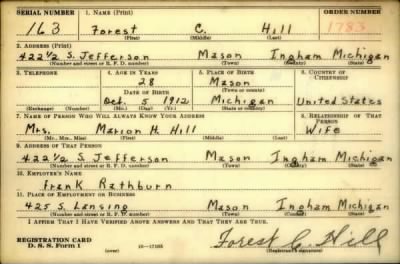 SERIAL NUMBER 1. NAME (Print) ORDER NUMBER
163 Forest C. Hill 1783
(First) (Middle) (Last)
2. ADDRESS (Print)
422½ S. Jefferson Mason Ingham Michigan
(Number and street or R. F. D. number) (Town) (County) (State)
3. TELEPHONE 4. AGE IN YEARS 5. PLACE OF BIRTH 6. COUNTRY OF CITIZENSHIP
28 Mason
DATE OF BIRTH (Town or county)
Oct. 5 1912 Michigan United States
(Exchange) (Number) (Mo.) (Day) (Yr.) (State or country)
7. NAME OF PERSON WHO WILL ALWAYS KNOW YOUR ADDRESS 8. RELATIONSHIP OF THAT PERSON
Mrs. Marion H. Hill Wife
(Mr., Mrs., Miss) (First) (Middle) (Last)
9. ADDRESS OF THAT PERSON
422½ S. Jefferson Mason Ingham Michigan
(Number and street or R. F. D. number) (Town) (County) (State)
10. EMPLOYER'S NAME
Frank Rathburn
11. PLACE OF EMPLOYMENT OR BUSINESS
425 S. Lansing Mason Ingham Michigan
(Number and street or R. F. D. number) (Town) (County) (State)
I AFFIRM THAT I HAVE VERIFIED ABOVE ANSWERS AND THAT THEY ARE TRUE.
REGISTRATION CARD
D. S. S. Form 1 16—17105 Forest C. Hill